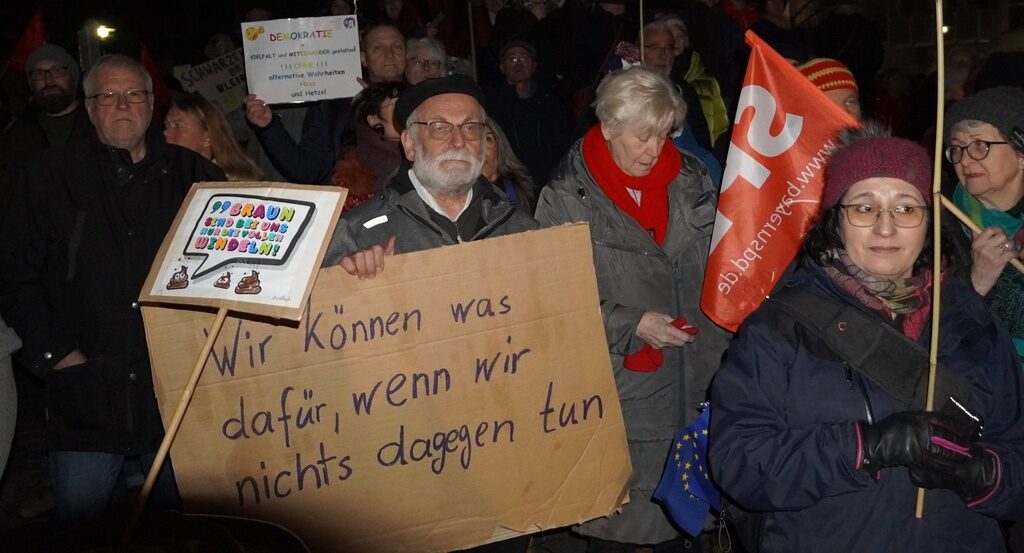 DEMOKRATIE
in
VIELFALT und MITEINANDER gestalten!
!!! OHNE !!!
alternative Wahrheiten
Hass
und Hetze!
SCHWARZE
BLEI
99 BRAUN
SIND BEI UNS
NUR DIE VOLLEN
WINDELN!
Wir können was
dafür, wenn wir
nichts dagegen tun
SP
www.bayernspd.de